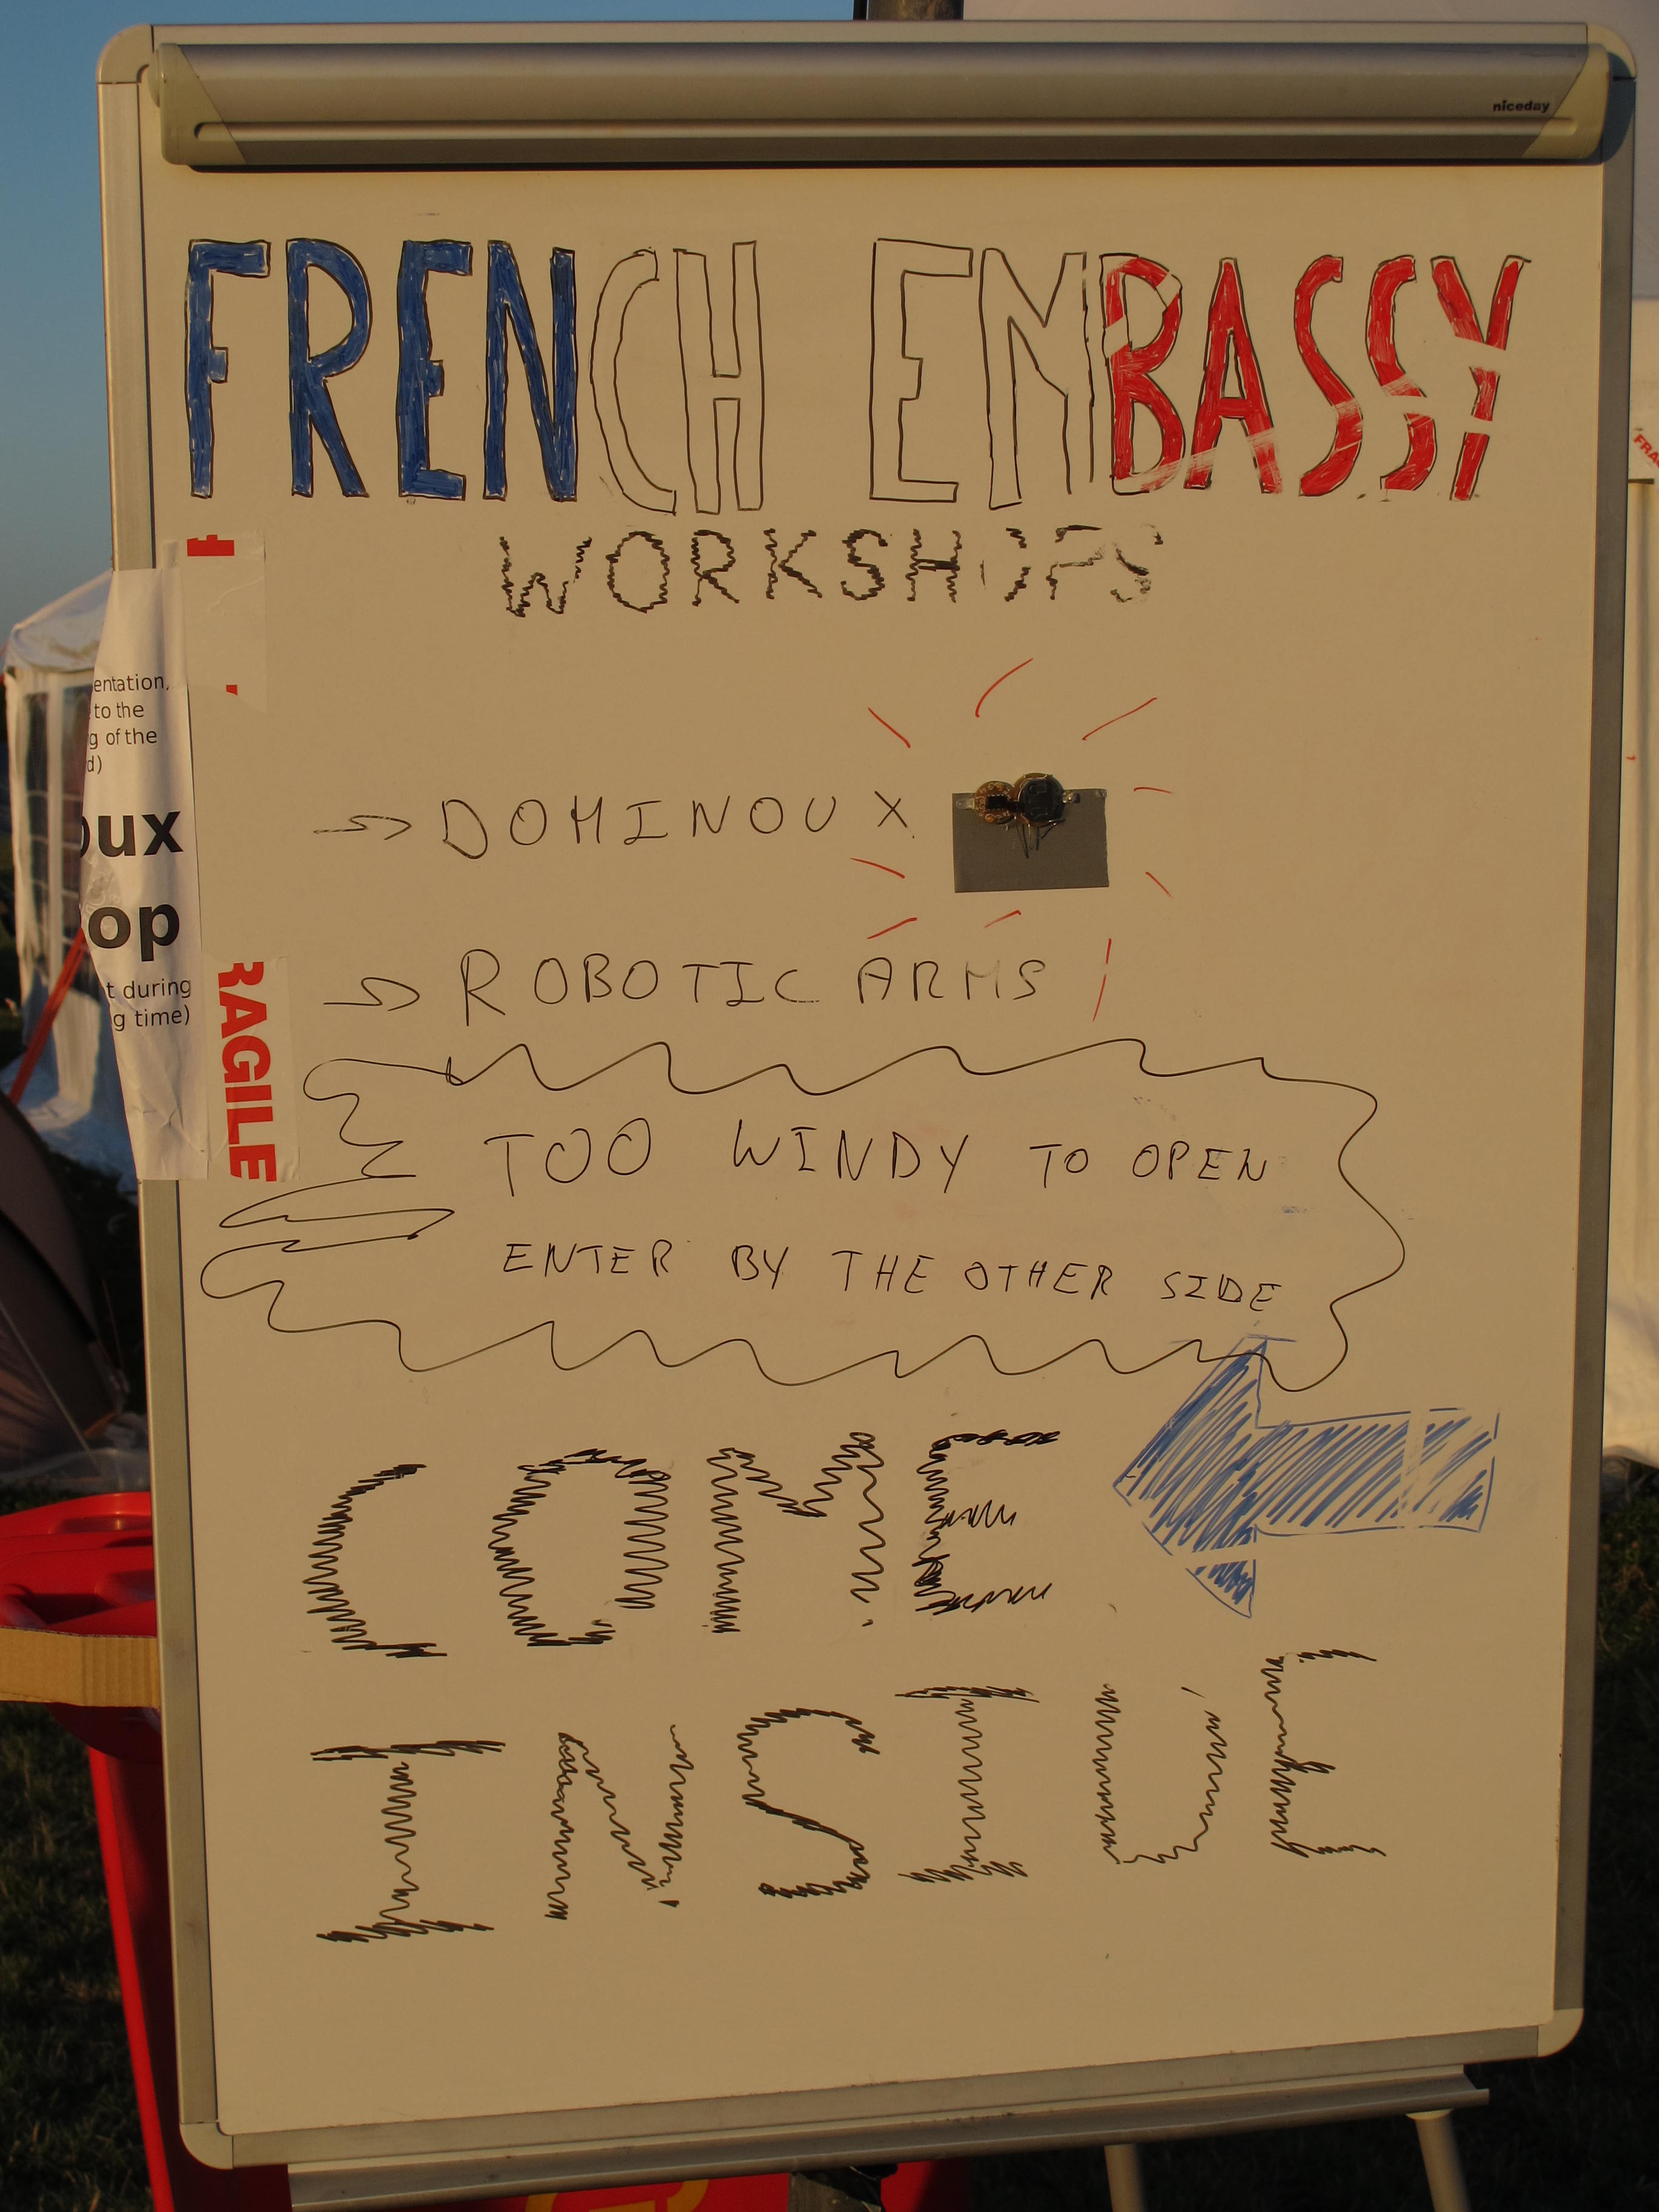 niceday
FRENCH EMBASSY
WORKSHOPS
entation,
to the
g of the
d)
oux
op
t during
g time)
RAGILE
DOMINOUX
ROBOTIC ARMS
TOO WINDY TO OPEN
ENTER BY THE OTHER SIDE
COME
INSIDE